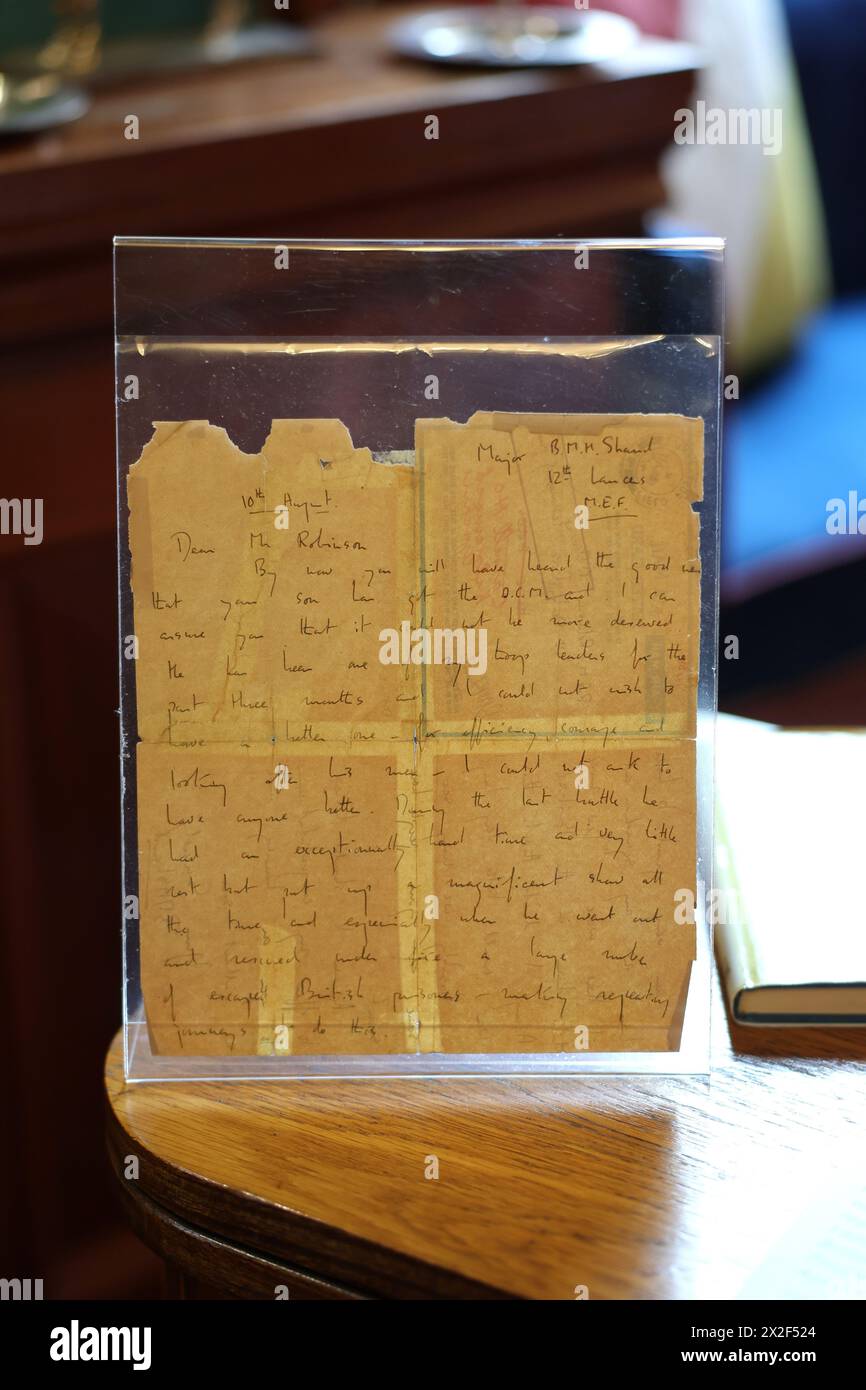 Major B.M.H. Shand
12th Lancers
M.E.F.
10th August
Dear Mr Robinson
By now you will have heard the good news
that your son has got the D.C.M. and I can
assure you that it could not be more deserved
He has been one of my troop leaders for the
past three months and I could not wish to
have a better one – for efficiency courage and
looking after his men – I could not ask to
have anyone better. During the last battle he
had an exceptionally hard time and very little
rest but put up a magnificent show all
the time and especially when he went out
and rescued under fire a large number
of escaped British prisoners – making repeated
journeys to do this.
alamy
Image ID: 2X2F524
www.alamy.com